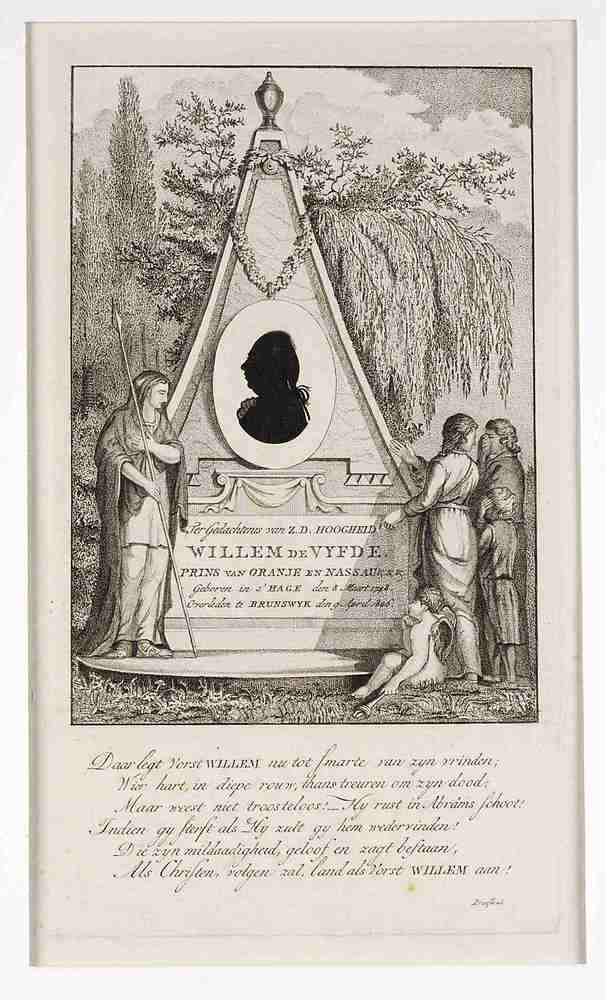 Ter Gedachtenis van Z.D. HOOGHEID
WILLEM DE VYFDE.
PRINS VAN ORANJE EN NASSAU,
Geboren in 's HAGE den 8 Maart 1748
Overleden te BRUNSWYK den 9 April 1806.
Daar legt Vorst WILLEM nu tot smarte van zyn vrinden;
Wier hart, in diepe rouw, thans treuren om zyn dood;
Maar weest niet troosteloos! Hy rust in Abrâms schoot!
Indien gy sterft als Hy zult gy hem wedervinden!
Die zyn mildaadigheid, geloof en zagt bestaan,
Als Christen, volgen zal, land als Vorst WILLEM aan!